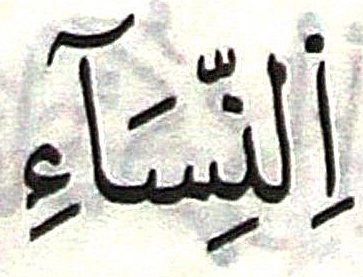 اِلنِّسَآءِ